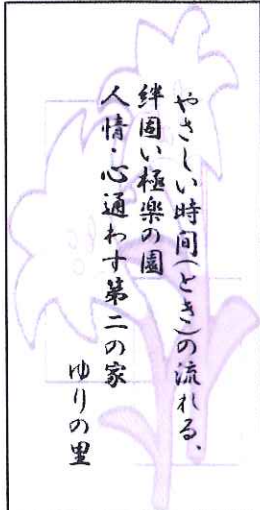 やさしい時間(とき)の流れる、
絆固い極楽の園
人情・心通わす第二の家
ゆりの里